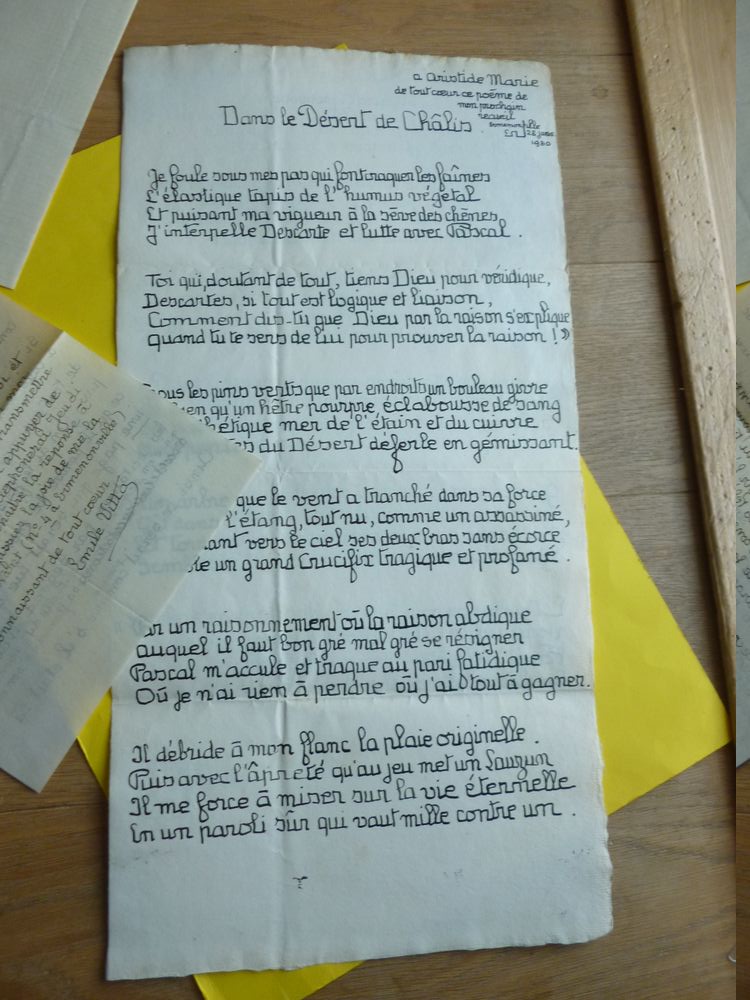 a Aristide Marie
de tout cœur ce poème de
mon prochain
recueil
Ermenonville
En 28 janv
1930
Dans le Désert de Châlis
Je foule sous mes pas qui font craquer les faînes
L'élastique tapis de l'humus végétal
Et puisant ma vigueur à la sève des chênes,
J'interpelle Descarte et lutte avec Pascal.
Toi qui, doutant de tout, tiens Dieu pour véridique,
Descartes, si tout est logique et liaison,
Comment dis-tu que Dieu par la raison s'explique
quand tu te sers de lui pour prouver la raison ! »
sous les pins verts que par endroits un bouleau givre
en qu'un hêtre pourpre éclabousse de sang
hétique mer de l'étain et du cuivre
es du Désert déferle en gémissant.
que le vent a tranché dans sa force
l'étang, tout nu, comme un assassiné,
ant vers le ciel ses deux bras sans écorce
te un grand Crucifix tragique et profané.
ar un raisonnement où la raison abdique
auquel il faut bon gré mal gré se résigner
Pascal m'accule et traque au pari fatidique
Où je n'ai rien à perdre où j'ai tout à gagner.
Il débride à mon flanc la plaie originelle.
Puis avec l'âpreté qu'au jeu met un Lauzun
Il me force à miser sur la vie éternelle
En un paroli sûr qui vaut mille contre un.
et de
transmettre
appuyer de
téléphonerai jeudi
la réponse à
de me la
(N° 4 à Ermenonville)
connaissant de tout cœur
Emile Vitta